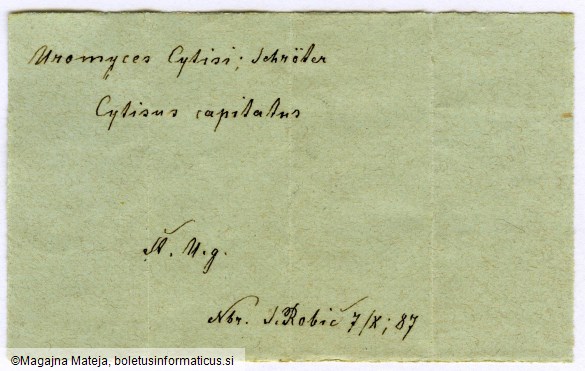 Uromyces Cytisi; Schröter
Cytisus capitatus
Št. U.g.
Nbr. S. Robič 7/X; 87
©Magajna Mateja, boletusinformaticus.si